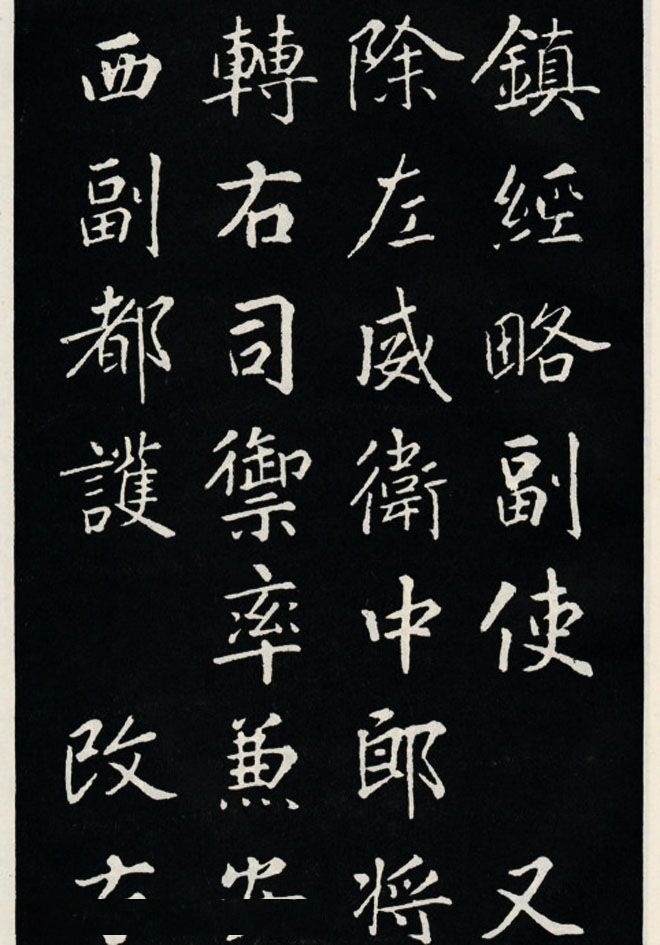 鎮經略副使 又
除左威衛中郎将
轉右司禦率兼
西副都護 改